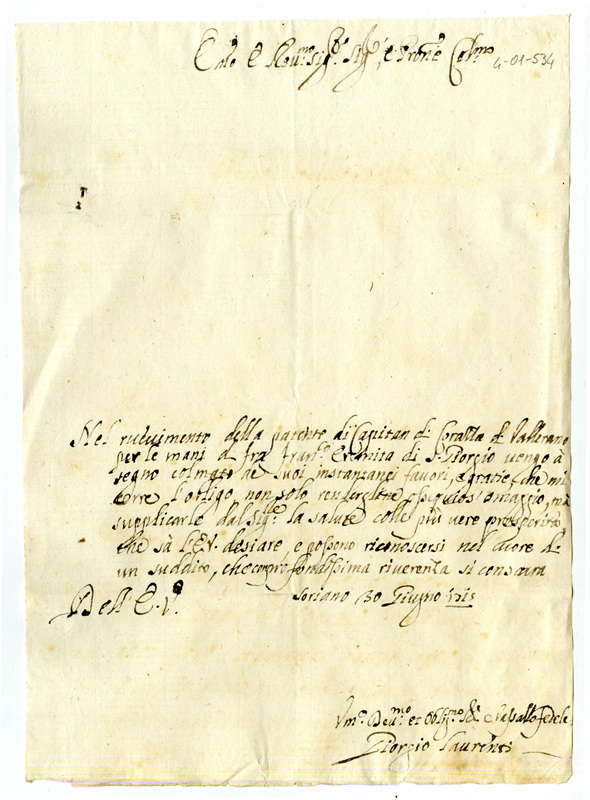 Em.o E Rev.mo Sig.re Sig.re, e Prone Col.mo
4-01-534
Nel ricevimento della patente di Capitan di Corazze di Vallerano
per le mani di fra fran.o Eremita di S. Giorgio vengo à
segno colmato de suoi instantanei favori, e gratie, che mi
corre l'obligo, non solo rendercelene ossequioso omaggio, mà
supplicarle dal Sig.e la salute colle più vere prosperità
che sà l'E.V. desiare, e possono riconoscersi nel cuore di
un suddito, che con profondissima riverenza si consacra
Dell' E. V.
Soriano 30 Giugno
Um.o Dev.mo et Oblig.mo Vassallo fedele
Giorgio Laurenti